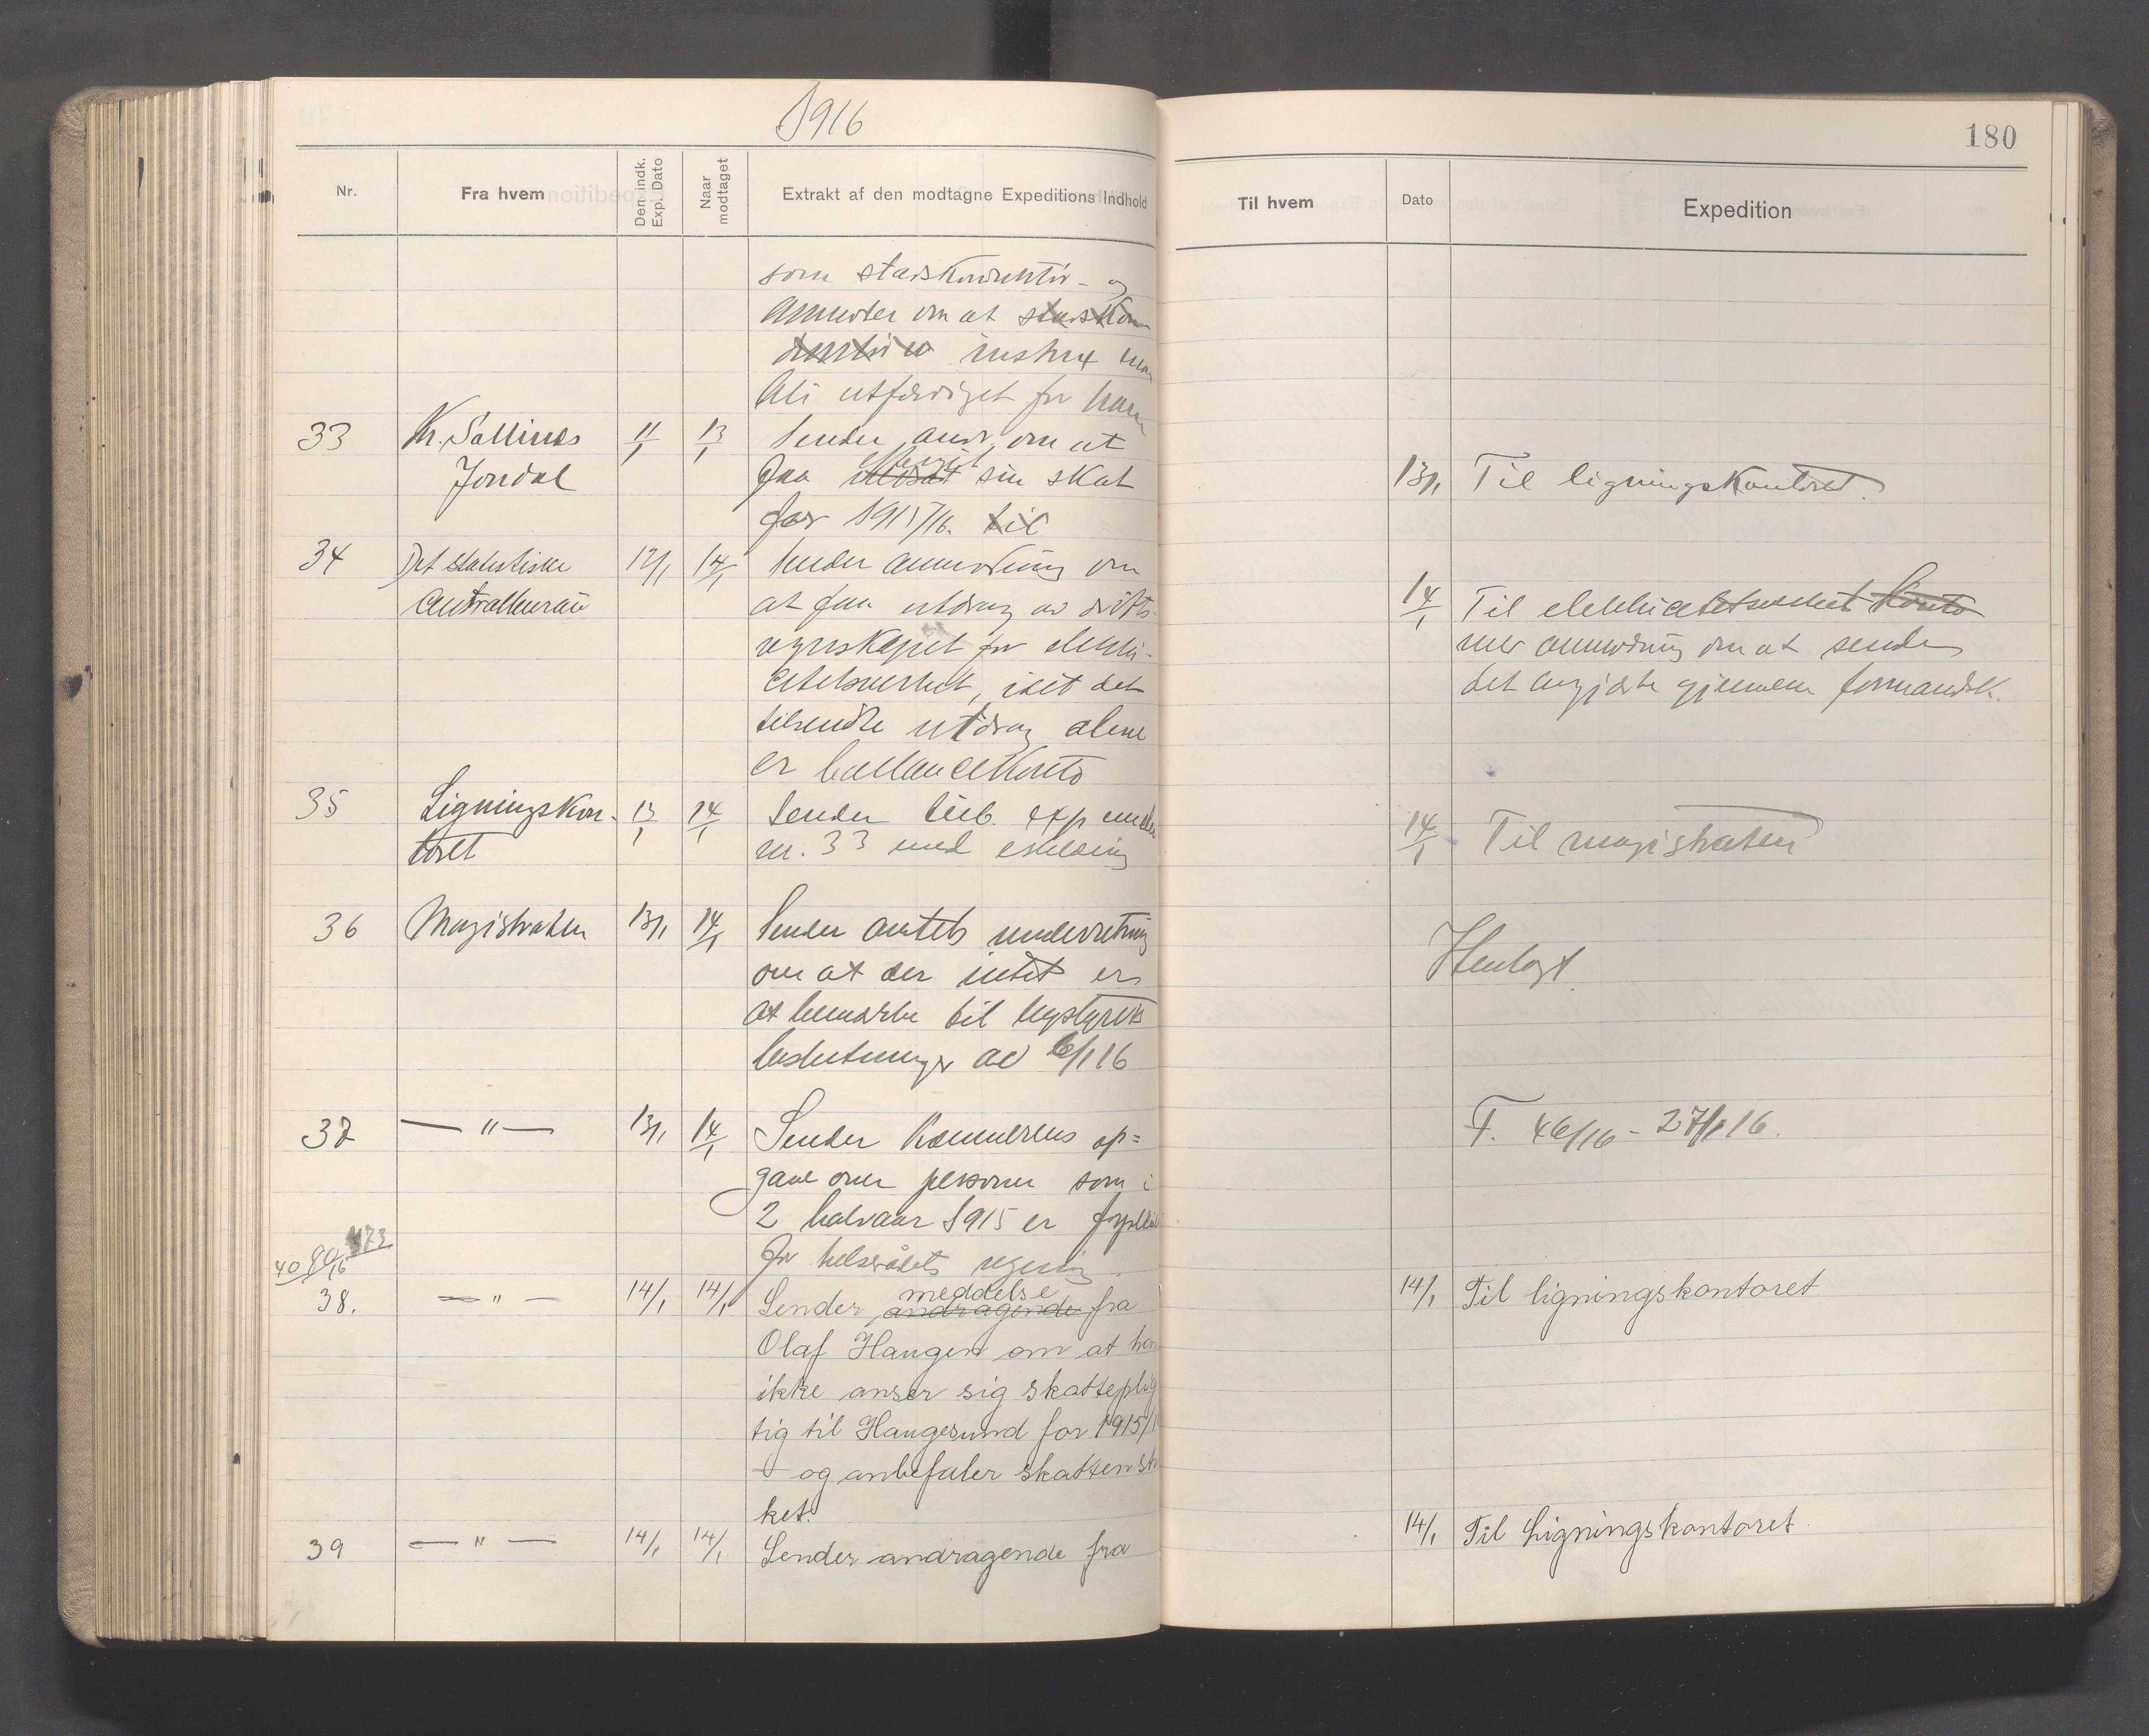 1916
180
Nr.
Fra hvem
Den indk. Exp. Dato
Naar modtaget
Extrakt af den modtagne Expeditions Indhold
Til hvem
Dato
Expedition
som
om at
instrux
bli utfærdiget for ham
33 Kr. Sallines 11/1 13/1 Sender andr. om at
Jondal faa eftergit sin skat
for 1915/16. til
13/1 Til ligningskontoret.
34 Det statistiske 12/1 14/1 Sender anmodning om
Centralbureau at faa utdrag av drifts-
regnskapet for elektri-
citetsverket, idet det
tilsendte utdrag alene
er ballancekonto
14/1 Til elektricitetsverket konto
med anmodning om at sende
det avgjorte gjennem formandsk.
35 Ligningskon- 13/1 14/1 Sender tilb. exp under
toret nr. 33 med erklæring
14/1 Til magistraten
36 Magistraten 13/1 14/1 Sender amtets underretning
om at der intet er
at bemærke til bystyrets
beslutninger av 6/1 16
Henlagt.
37 — " — 13/1 14/1 Sender kæmnerens op=
gave over personer som i
2 halvaar 1915 er forpleiet
for helserådets regning.
F. 46/16 - 27/1 16.
38. — " — 14/1 14/1 Sender andragende fra
meddelse
Olaf Haugen om at han
ikke anser sig skatteplig
tig til Haugesund for 1915/1
— og anbefaler skatten
ket.
14/1 Til ligningskontoret
39 — " — 14/1 14/1 Sender andragende fra
14/1 Til Ligningskontoret.